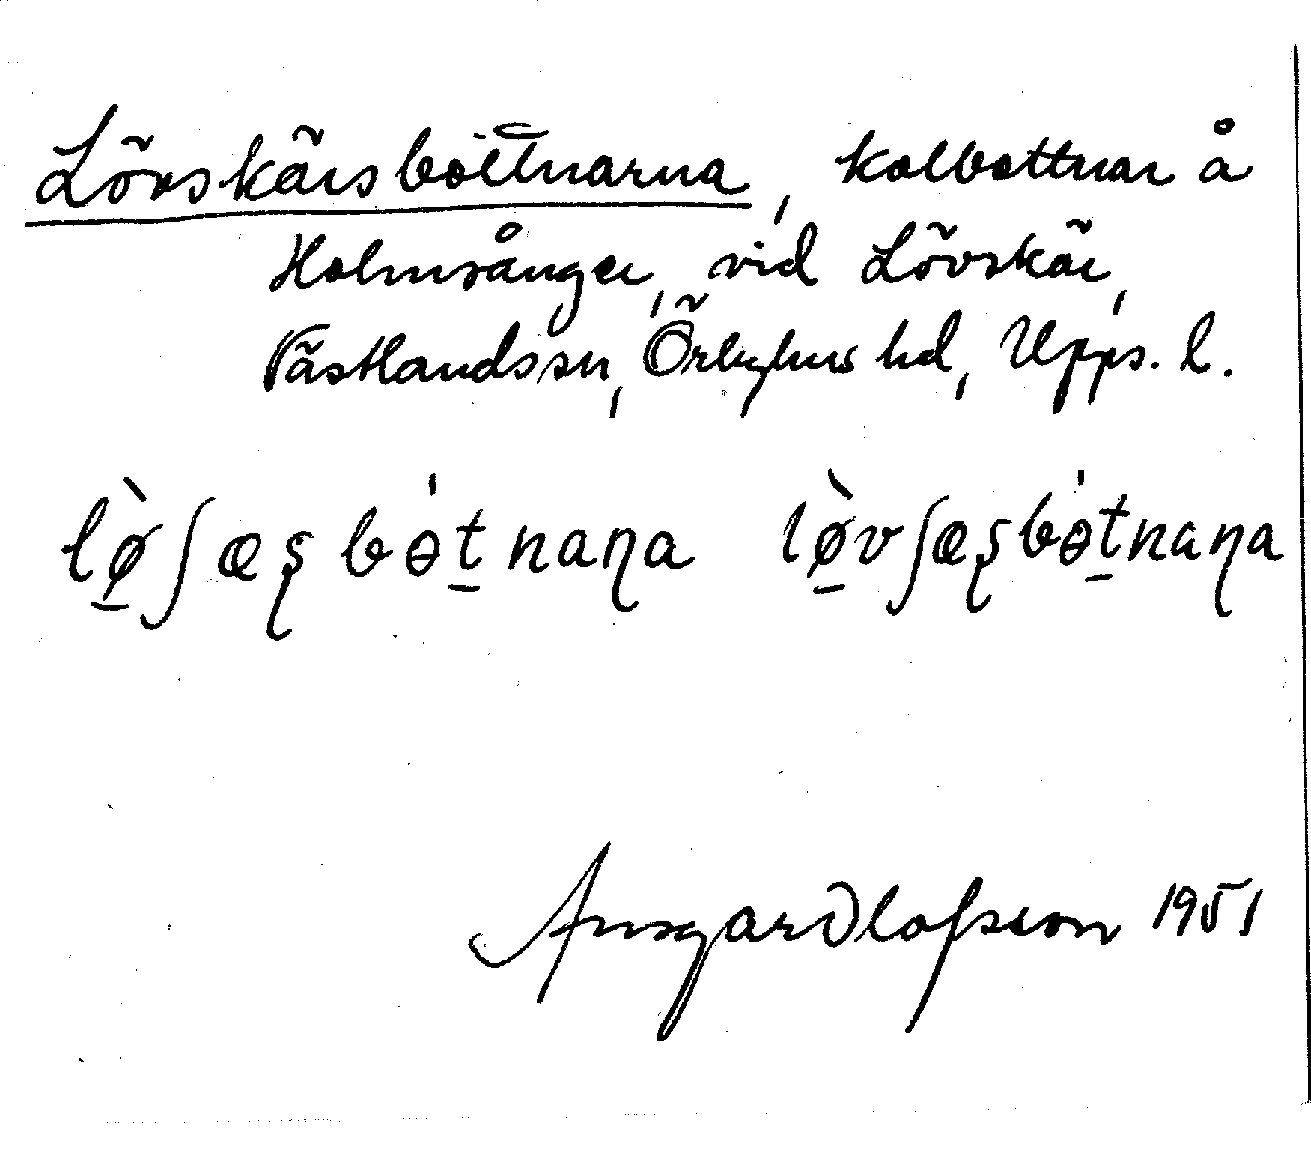 Lövskärsbottnarna, kolbottnar å
Holmsånger, vid Lövskär,
Västlandssn, Örbyhus hd, Upps. l.
lø̠̀ʃæʂbɵ̍t̠naɳa lø̠̀vʃæʂbɵ̍t̠naɳa
Ansgar Olofsson 1951